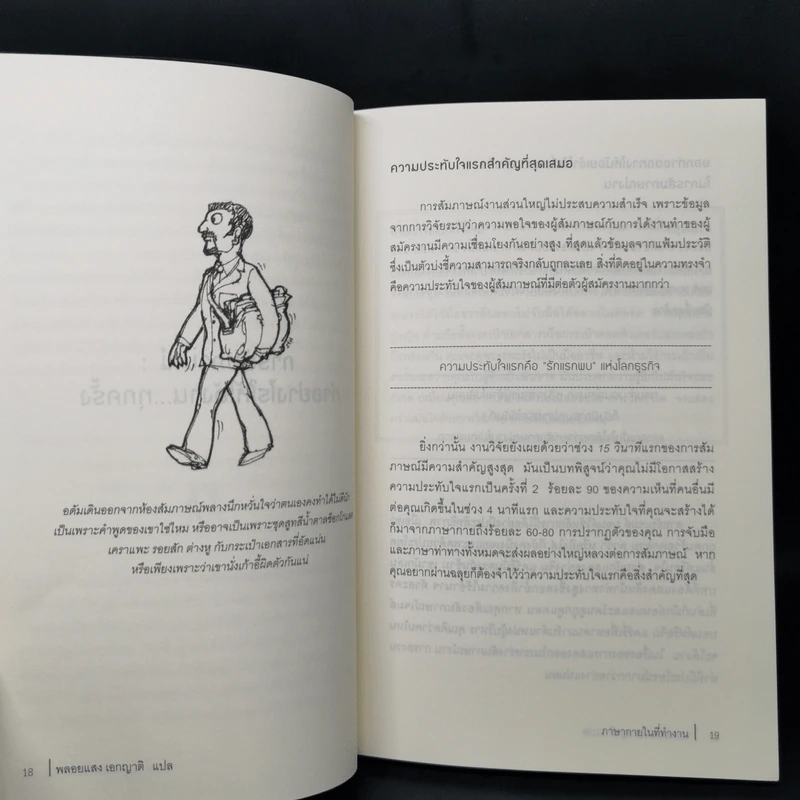 อดัมเดินออกจากห้องสัมภาษณ์พลางนึกหวั่นใจว่าตนเองคงทำได้ไม่ดีนัก
เป็นเพราะคำพูดของเขาใช่ไหม หรืออาจเป็นเพราะชุดสูทสีน้ำตาลช็อกโกแลต
เคราแพะ รอยสัก ต่างหู กับกระเป๋าเอกสารที่อัดแน่น
หรือเพียงเพราะว่าเขานั่งเก้าอี้ผิดตัวกันแน่
18 | พลอยแสง เอกญาติ แปล
ความประทับใจแรกสำคัญที่สุดเสมอ
การสัมภาษณ์งานส่วนใหญ่ไม่ประสบความสำเร็จ เพราะข้อมูล
จากการวิจัยระบุว่าความพอใจของผู้สัมภาษณ์กับการได้งานทำของผู้
สมัครงานมีความเชื่อมโยงกันอย่างสูง ที่สุดแล้วข้อมูลจากแฟ้มประวัติ
ซึ่งเป็นตัวบ่งชี้ความสามารถจริงกลับถูกละเลย สิ่งที่ติดอยู่ในความทรงจำ
คือความประทับใจของผู้สัมภาษณ์ที่มีต่อตัวผู้สมัครงานมากกว่า
ความประทับใจแรกคือ "รักแรกพบ" แห่งโลกธุรกิจ
ยิ่งกว่านั้น งานวิจัยยังเผยด้วยว่าช่วง 15 วินาทีแรกของการสัม
ภาษณ์มีความสำคัญสูงสุด มันเป็นบทพิสูจน์ว่าคุณไม่มีโอกาสสร้าง
ความประทับใจแรกเป็นครั้งที่ 2 ร้อยละ 90 ของความเห็นที่คนอื่นมี
ต่อคุณเกิดขึ้นในช่วง 4 นาทีแรก และความประทับใจที่คุณจะสร้างได้
ก็มาจากภาษากายถึงร้อยละ 60-80 การปรากฏตัวของคุณ การจับมือ
และภาษาท่าทางทั้งหมดจะส่งผลอย่างใหญ่หลวงต่อการสัมภาษณ์ หาก
คุณอยากผ่านฉลุยก็ต้องจำไว้ว่าความประทับใจแรกคือสิ่งสำคัญที่สุด
ภาษากายในที่ทำงาน | 19